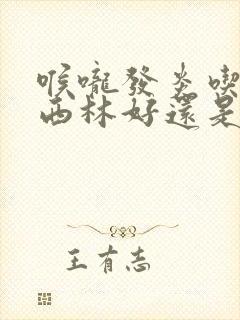 喉嚨發炎喫
西林好還是
王有志